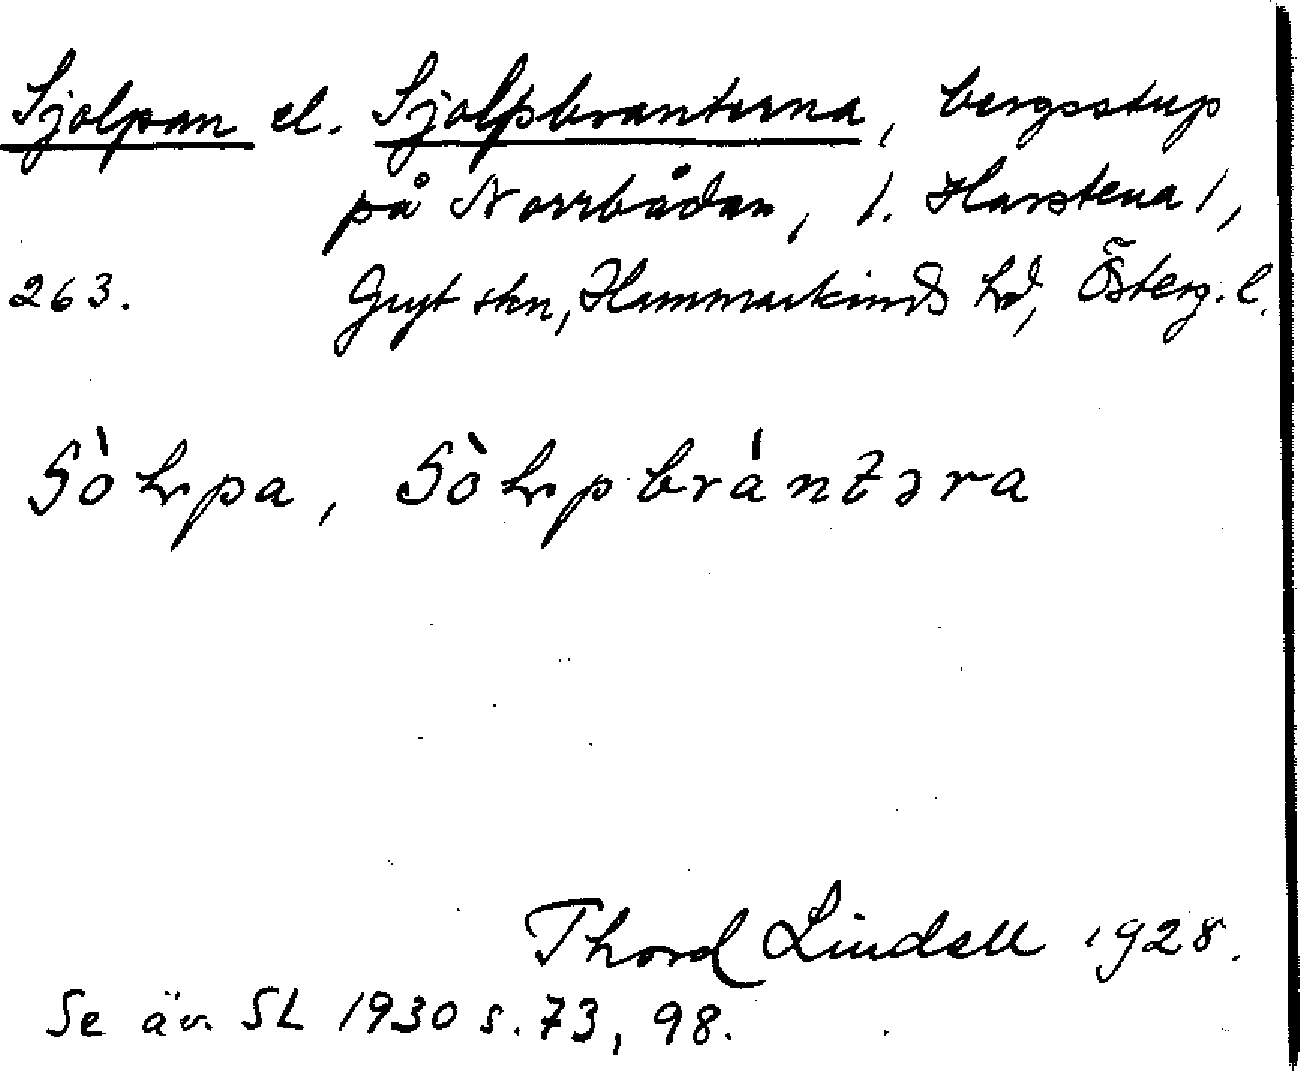 Sjolpan el. Sjolpbranterna, bergsstup
på Norrbådan, /. Harstena /,
263. Gryt skn, Hammarkinds hd, Österg. l.
Sòlpa, Sòlpbrántəra
Thord Lindell 1928.
Se äv. SL 1930 s. 73, 98.